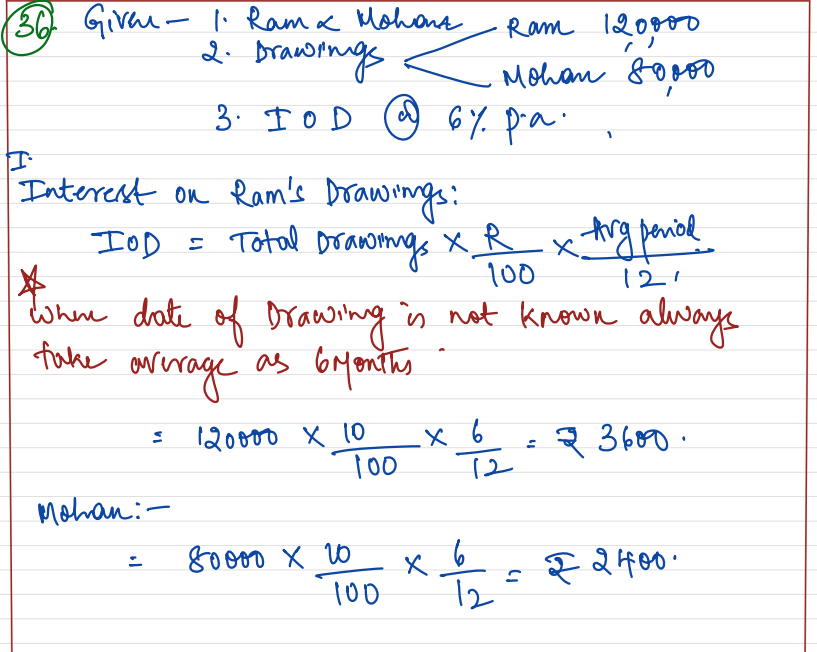 36. Given - 1. Ram & Mohan
2. Drawings Ram 120,000
Mohan 80,000
3. IOD @ 6% p.a.
I.
Interest on Ram's Drawings:
IOD = Total Drawings × R/100 × Avg period/12
When date of Drawing is not known always
take average as 6 Months
= 120000 × 10/100 × 6/12 = ₹ 3600.
Mohan:-
= 80000 × 10/100 × 6/12 = ₹ 2400.